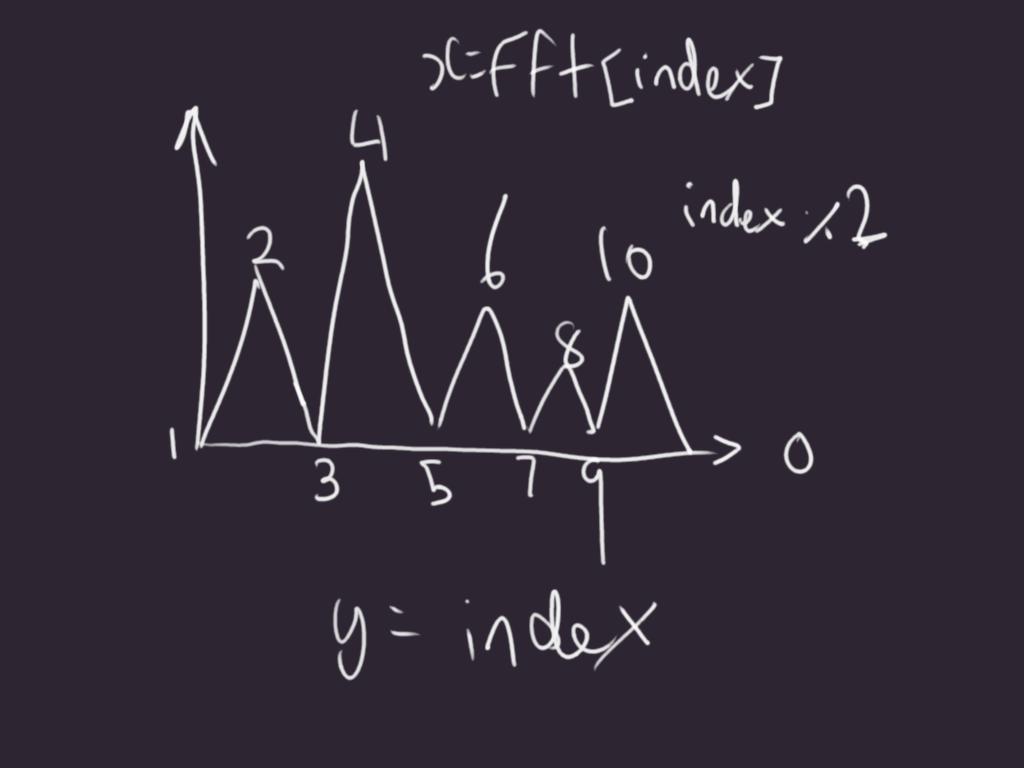 x=fft[index]
4
index %2
2
6
10
8
1
0
3 5 7 9
y= index